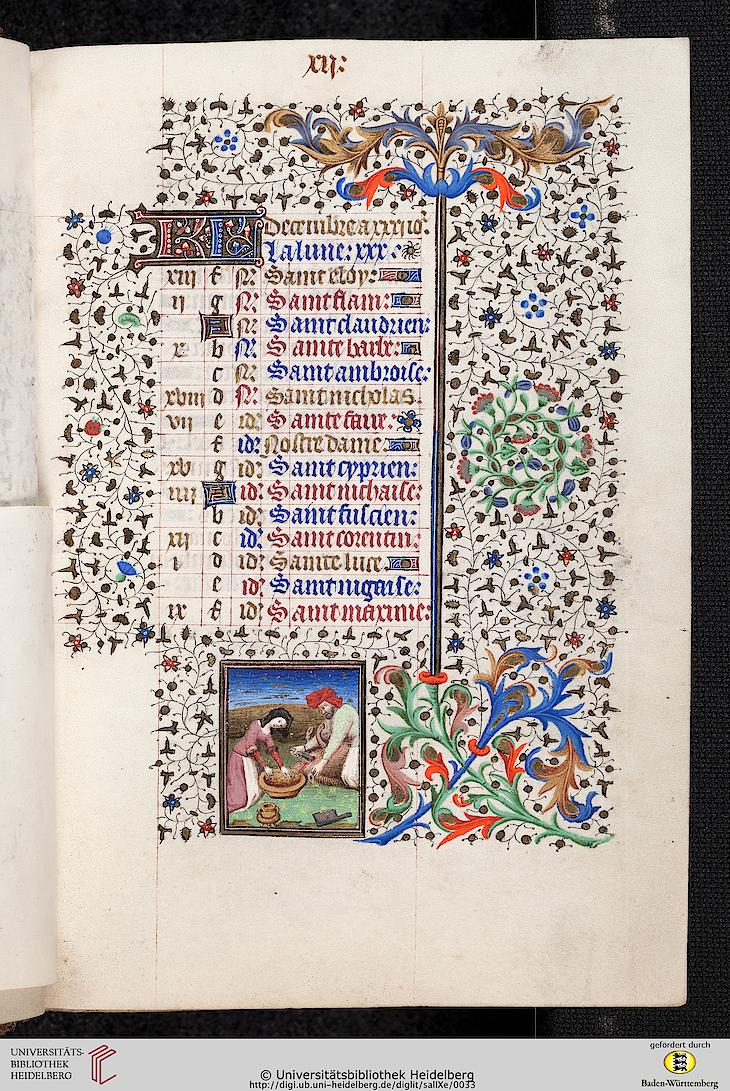 xij:
KL Decembre a xxxi io͛.
La lune: xxx.
xiii f N͛ Saint eloy:
ii g N͛: Saint flam:
A N͛ Saint claudien:
x b N͛. Sainte barbe:
c N͛. Saint ambroise:
xviii d N͛. Saint nicholas.
vii e id͛ Sainte faire:
f id͛ Nostre dame:
xv g id͛ Saint cyprien:
iiii A id͛ Saint nichaise:
b id͛ Saint fuscien:
xii c id͛ Saint corentin:
i d id͛ Sainte luce:
e id͛ Saint nigaise:
ix f id͛ Saint maximie:
UNIVERSITÄTS-
BIBLIOTHEK
HEIDELBERG
© Universitätsbibliothek Heidelberg
http://digi.ub.uni-heidelberg.de/diglit/salIXe/0033
gefördert durch
Baden-Württemberg